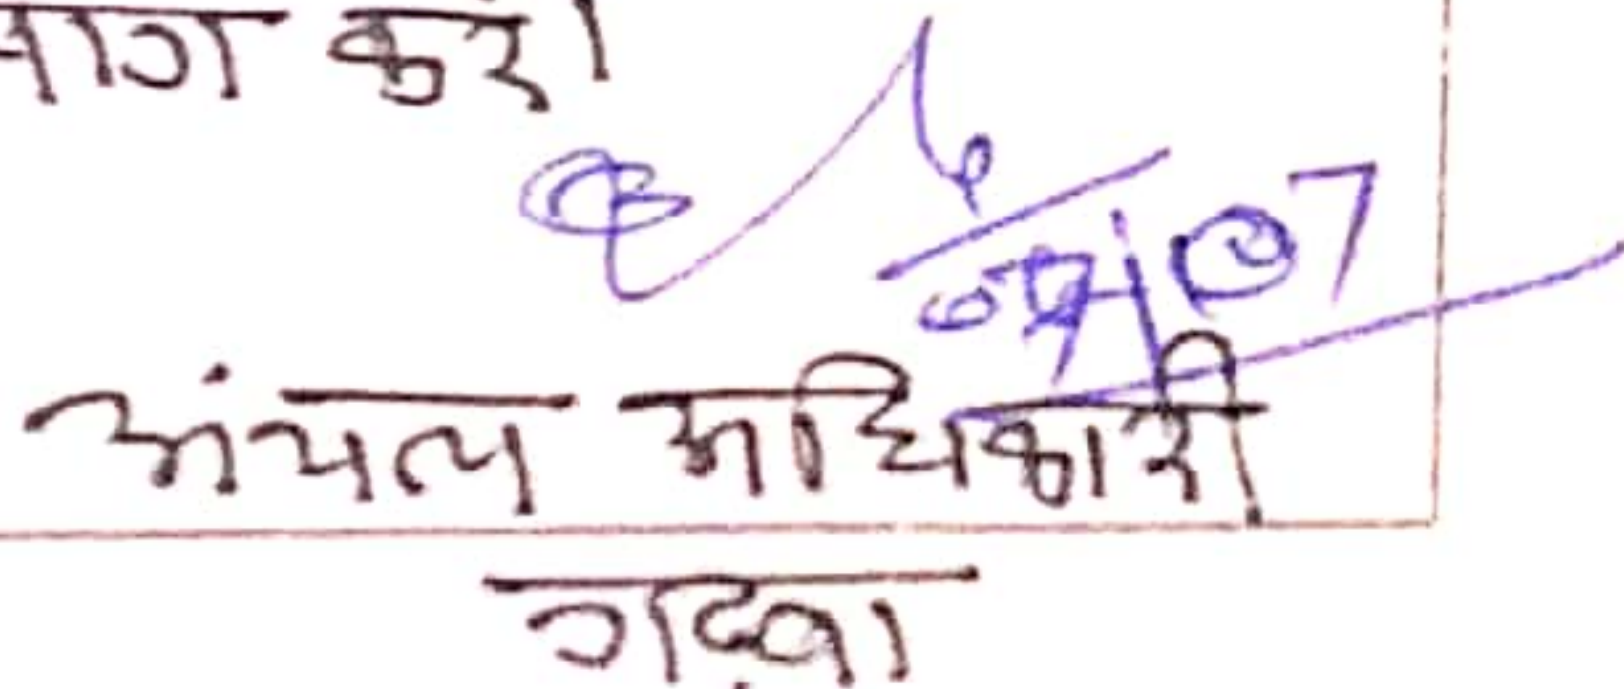 भाग करें।
07
अंचल अधिकारी
गढ़वा